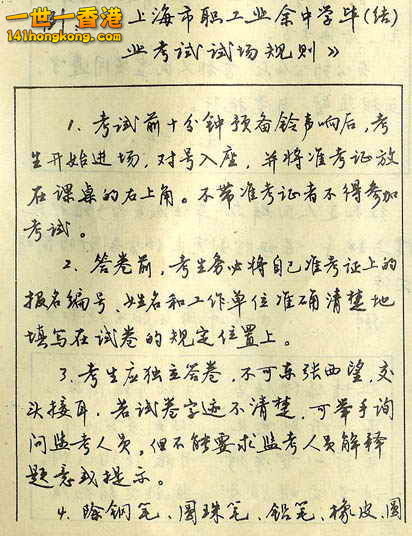 一世一香港
141hongkong.com
上海市职工业余中学毕(结)
业考试试场规则》
1. 考试前十分钟预备铃声响后,考
生开始进场,对号入座,并将准考证放
在课桌的右上角。不带准考证者不得参加
考试。
2. 答卷前,考生务必将自己准考证上的
报名编号、姓名和工作单位准确清楚地
填写在试卷的规定位置上。
3. 考生应独立答卷,不可东张西望,交
头接耳。若试卷字迹不清楚,可举手询
问监考人员,但不能要求监考人员解释
题意或提示。
4. 除钢笔、圆珠笔、铅笔、橡皮、圆